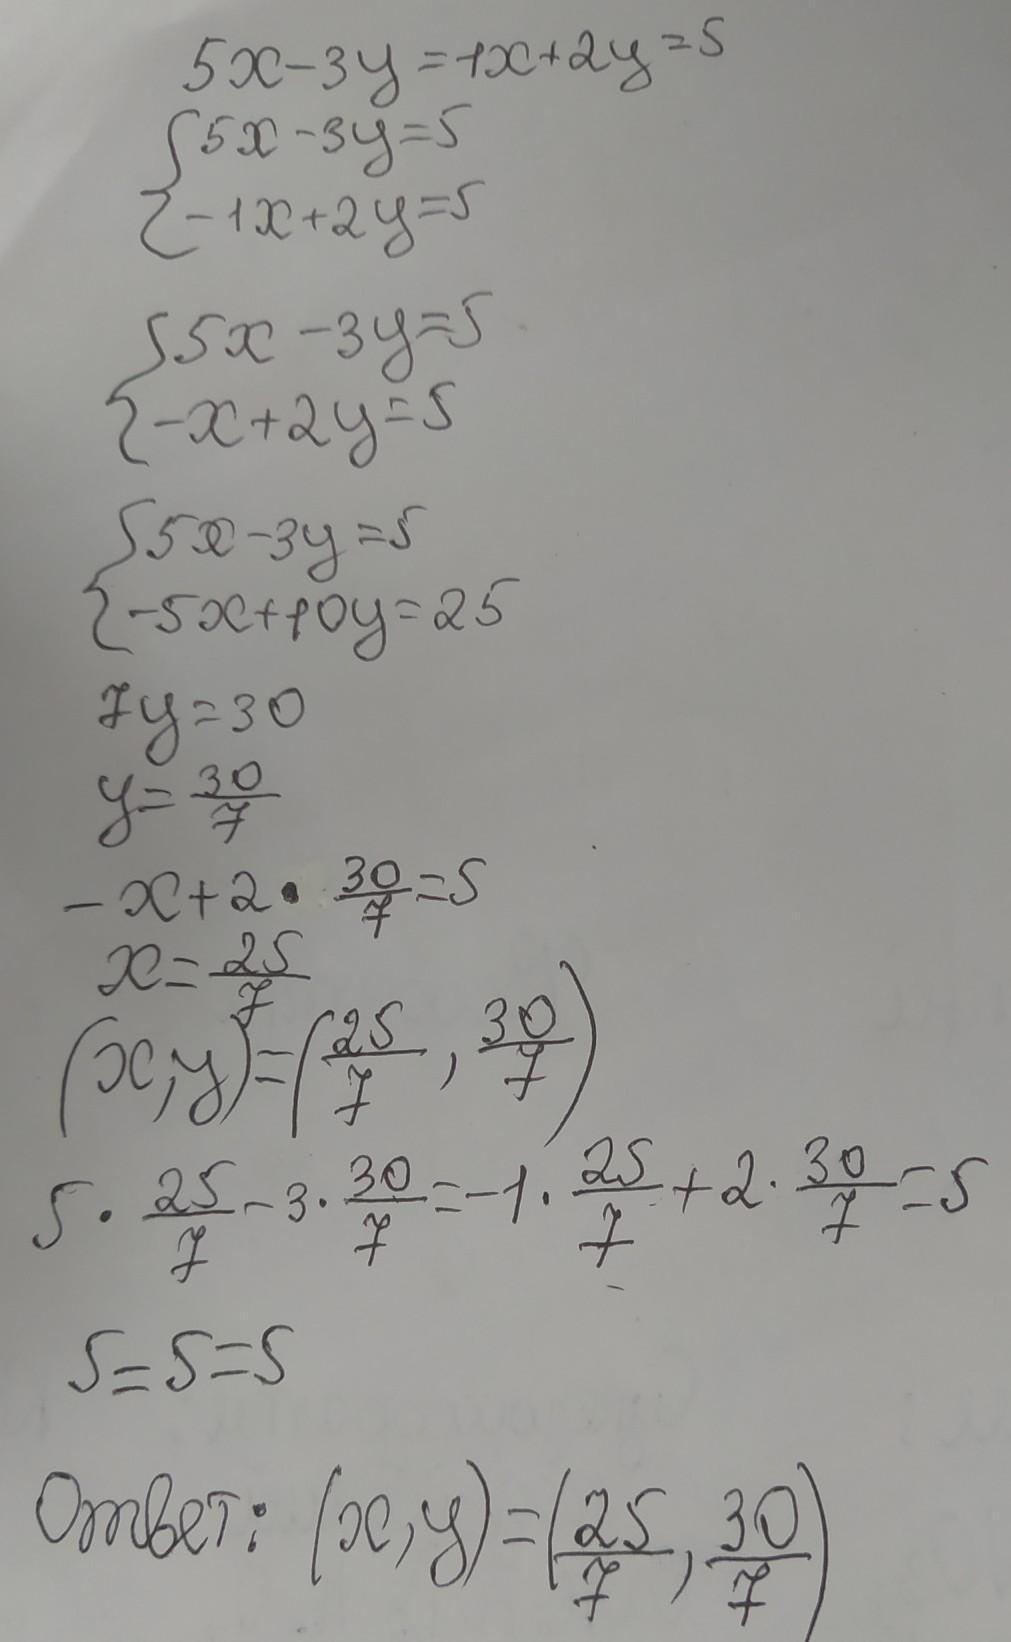 5x-3y=-1x+2y=5
{5x-3y=5
{-1x+2y=5
{5x-3y=5
{-x+2y=5
{5x-3y=5
{-5x+10y=25
7y=30
y=30/7
-x+2·30/7=5
x=25/7
(x,y)=(25/7,30/7)
5·25/7-3·30/7=-1·25/7+2·30/7=5
5=5=5
Ответ: (x,y)=(25/7,30/7)